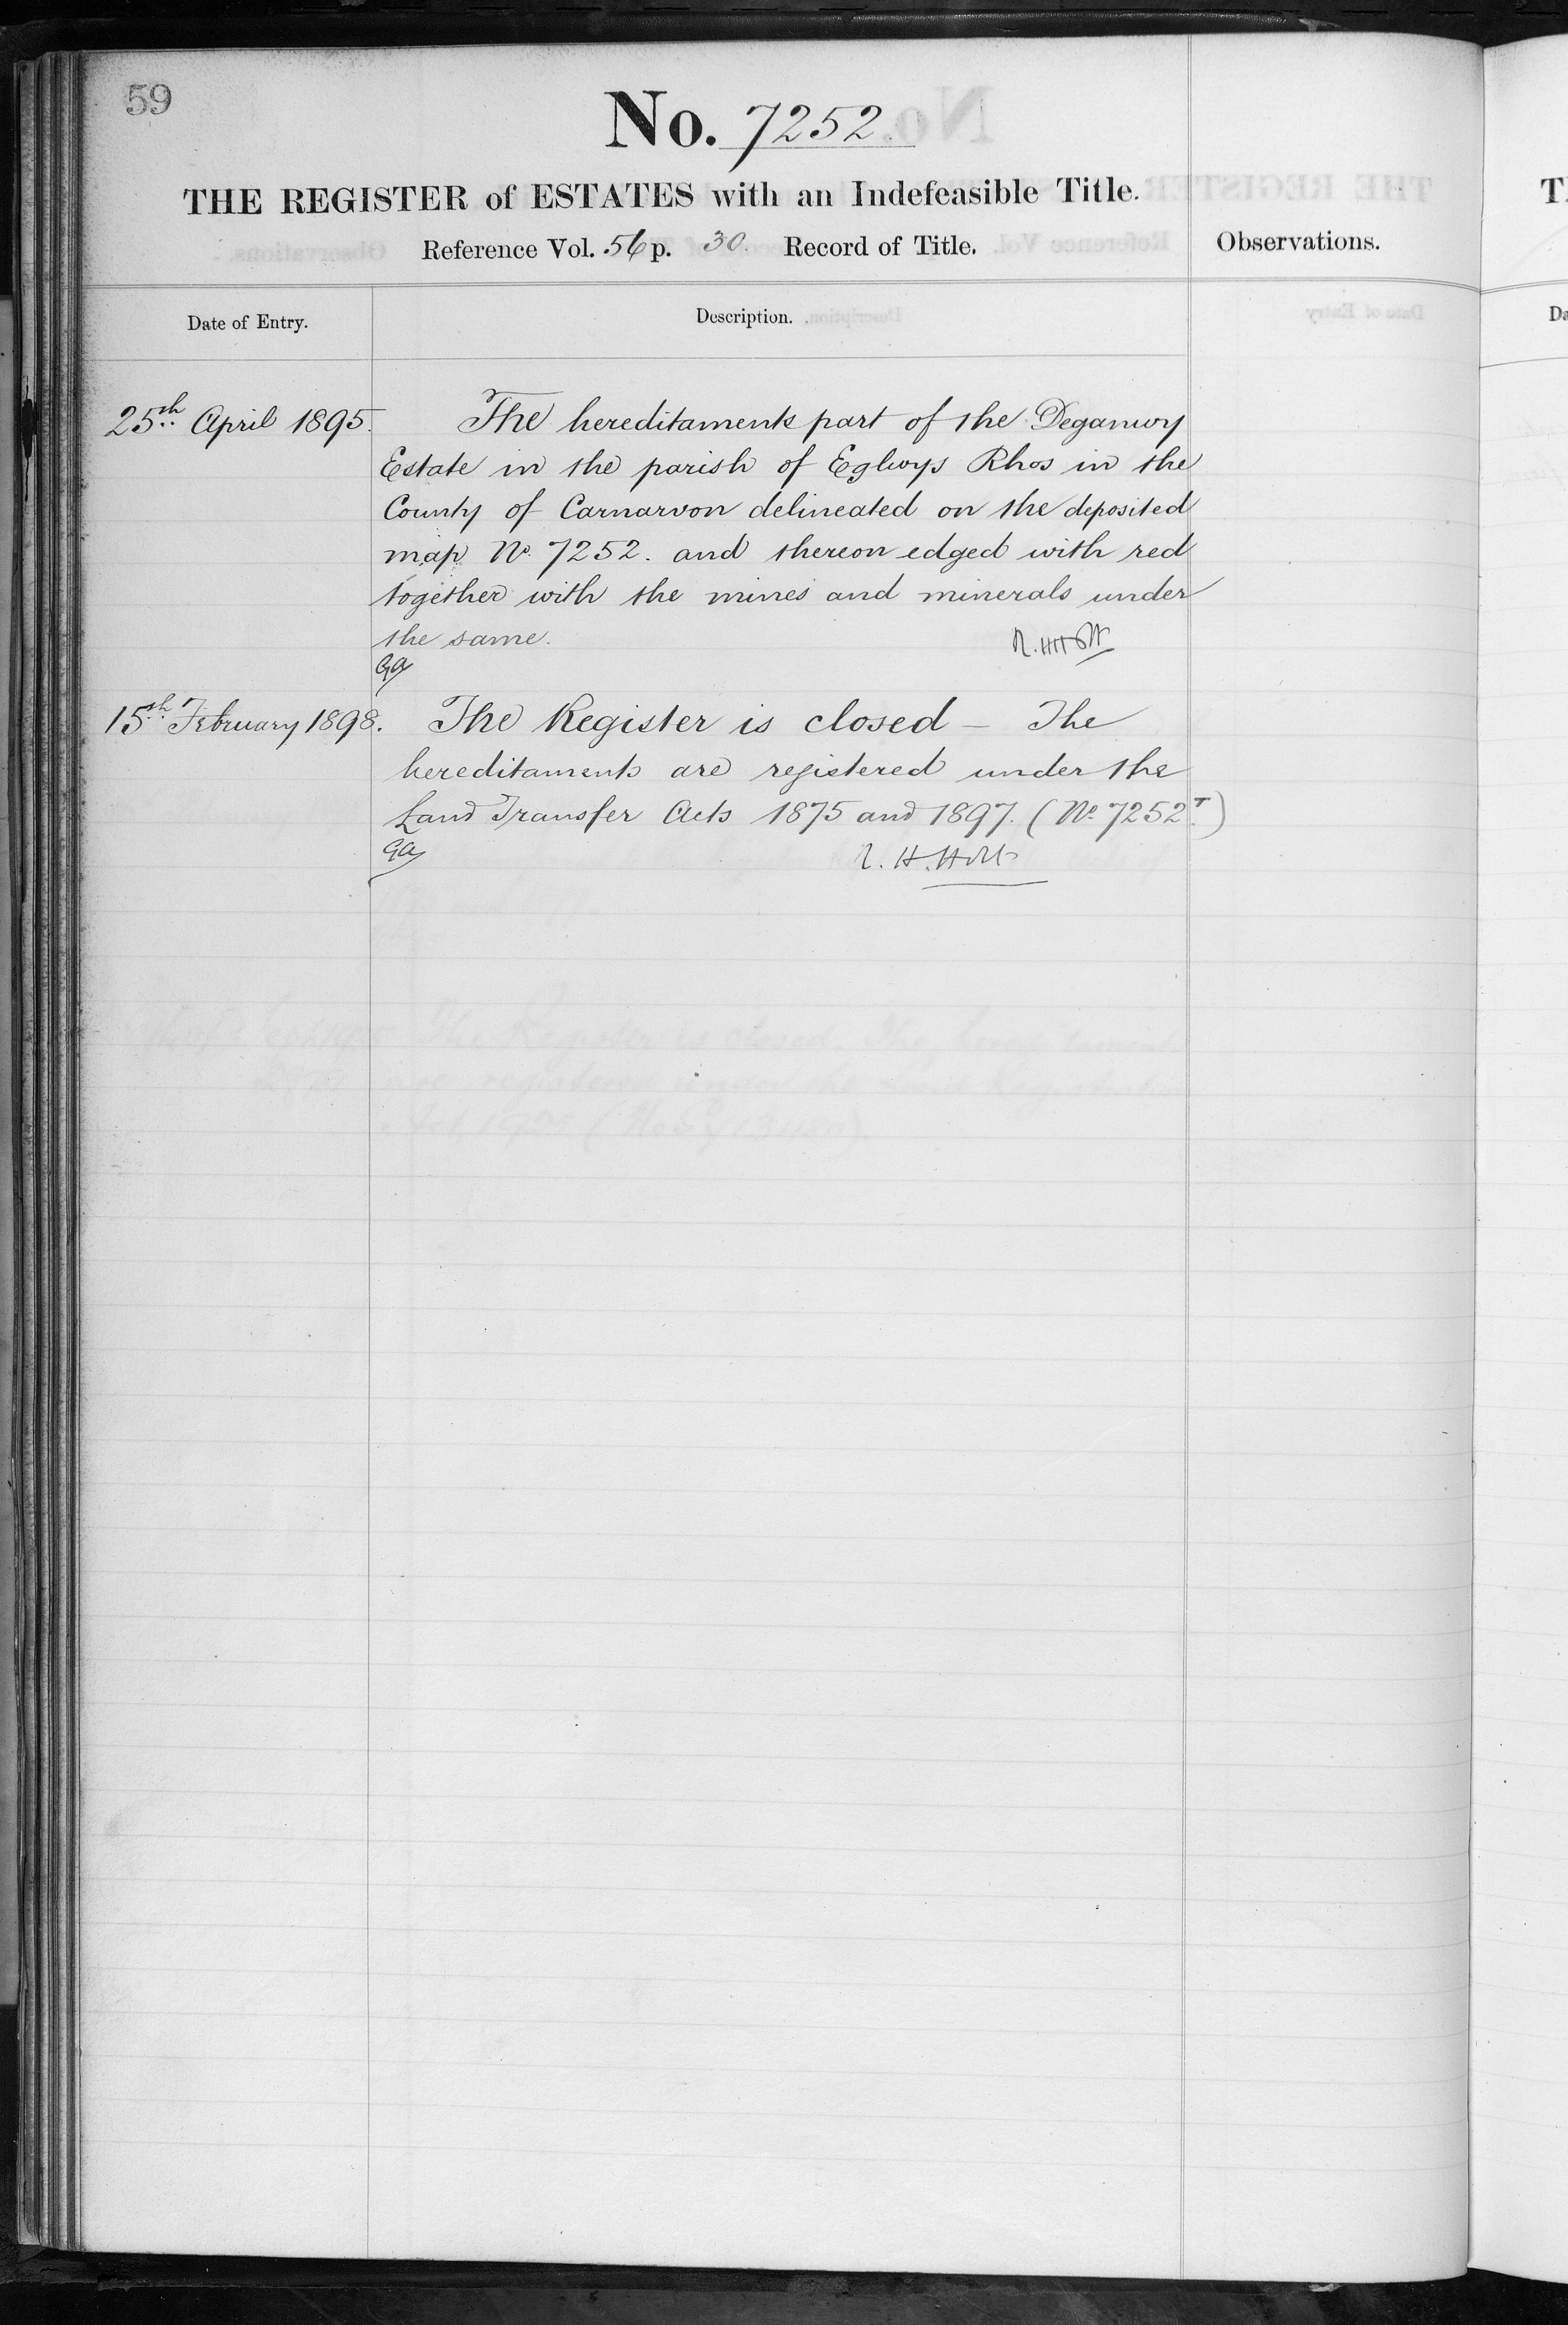 59
No. 7252
THE REGISTER of ESTATES with an Indefeasible Title.
Reference Vol. 56 p. 30. Record of Title.
Observations.
Date of Entry.
Description.
25th April 1895.
The hereditaments part of the Deganwy
Estate in the parish of Eglwys Rhos in the
County of Carnarvon delineated on the deposited
map No. 7252. and thereon edged with red
together with the mines and minerals under
the same.
R.H.Holt
GA
15th February 1898.
The Register is closed – The
hereditaments are registered under the
Land Transfer Acts 1875 and 1897. (No. 7252T.)
GA
R.H.Holt
The Register is closed. The hereditaments
are registered under the Land Registration
Act 1925